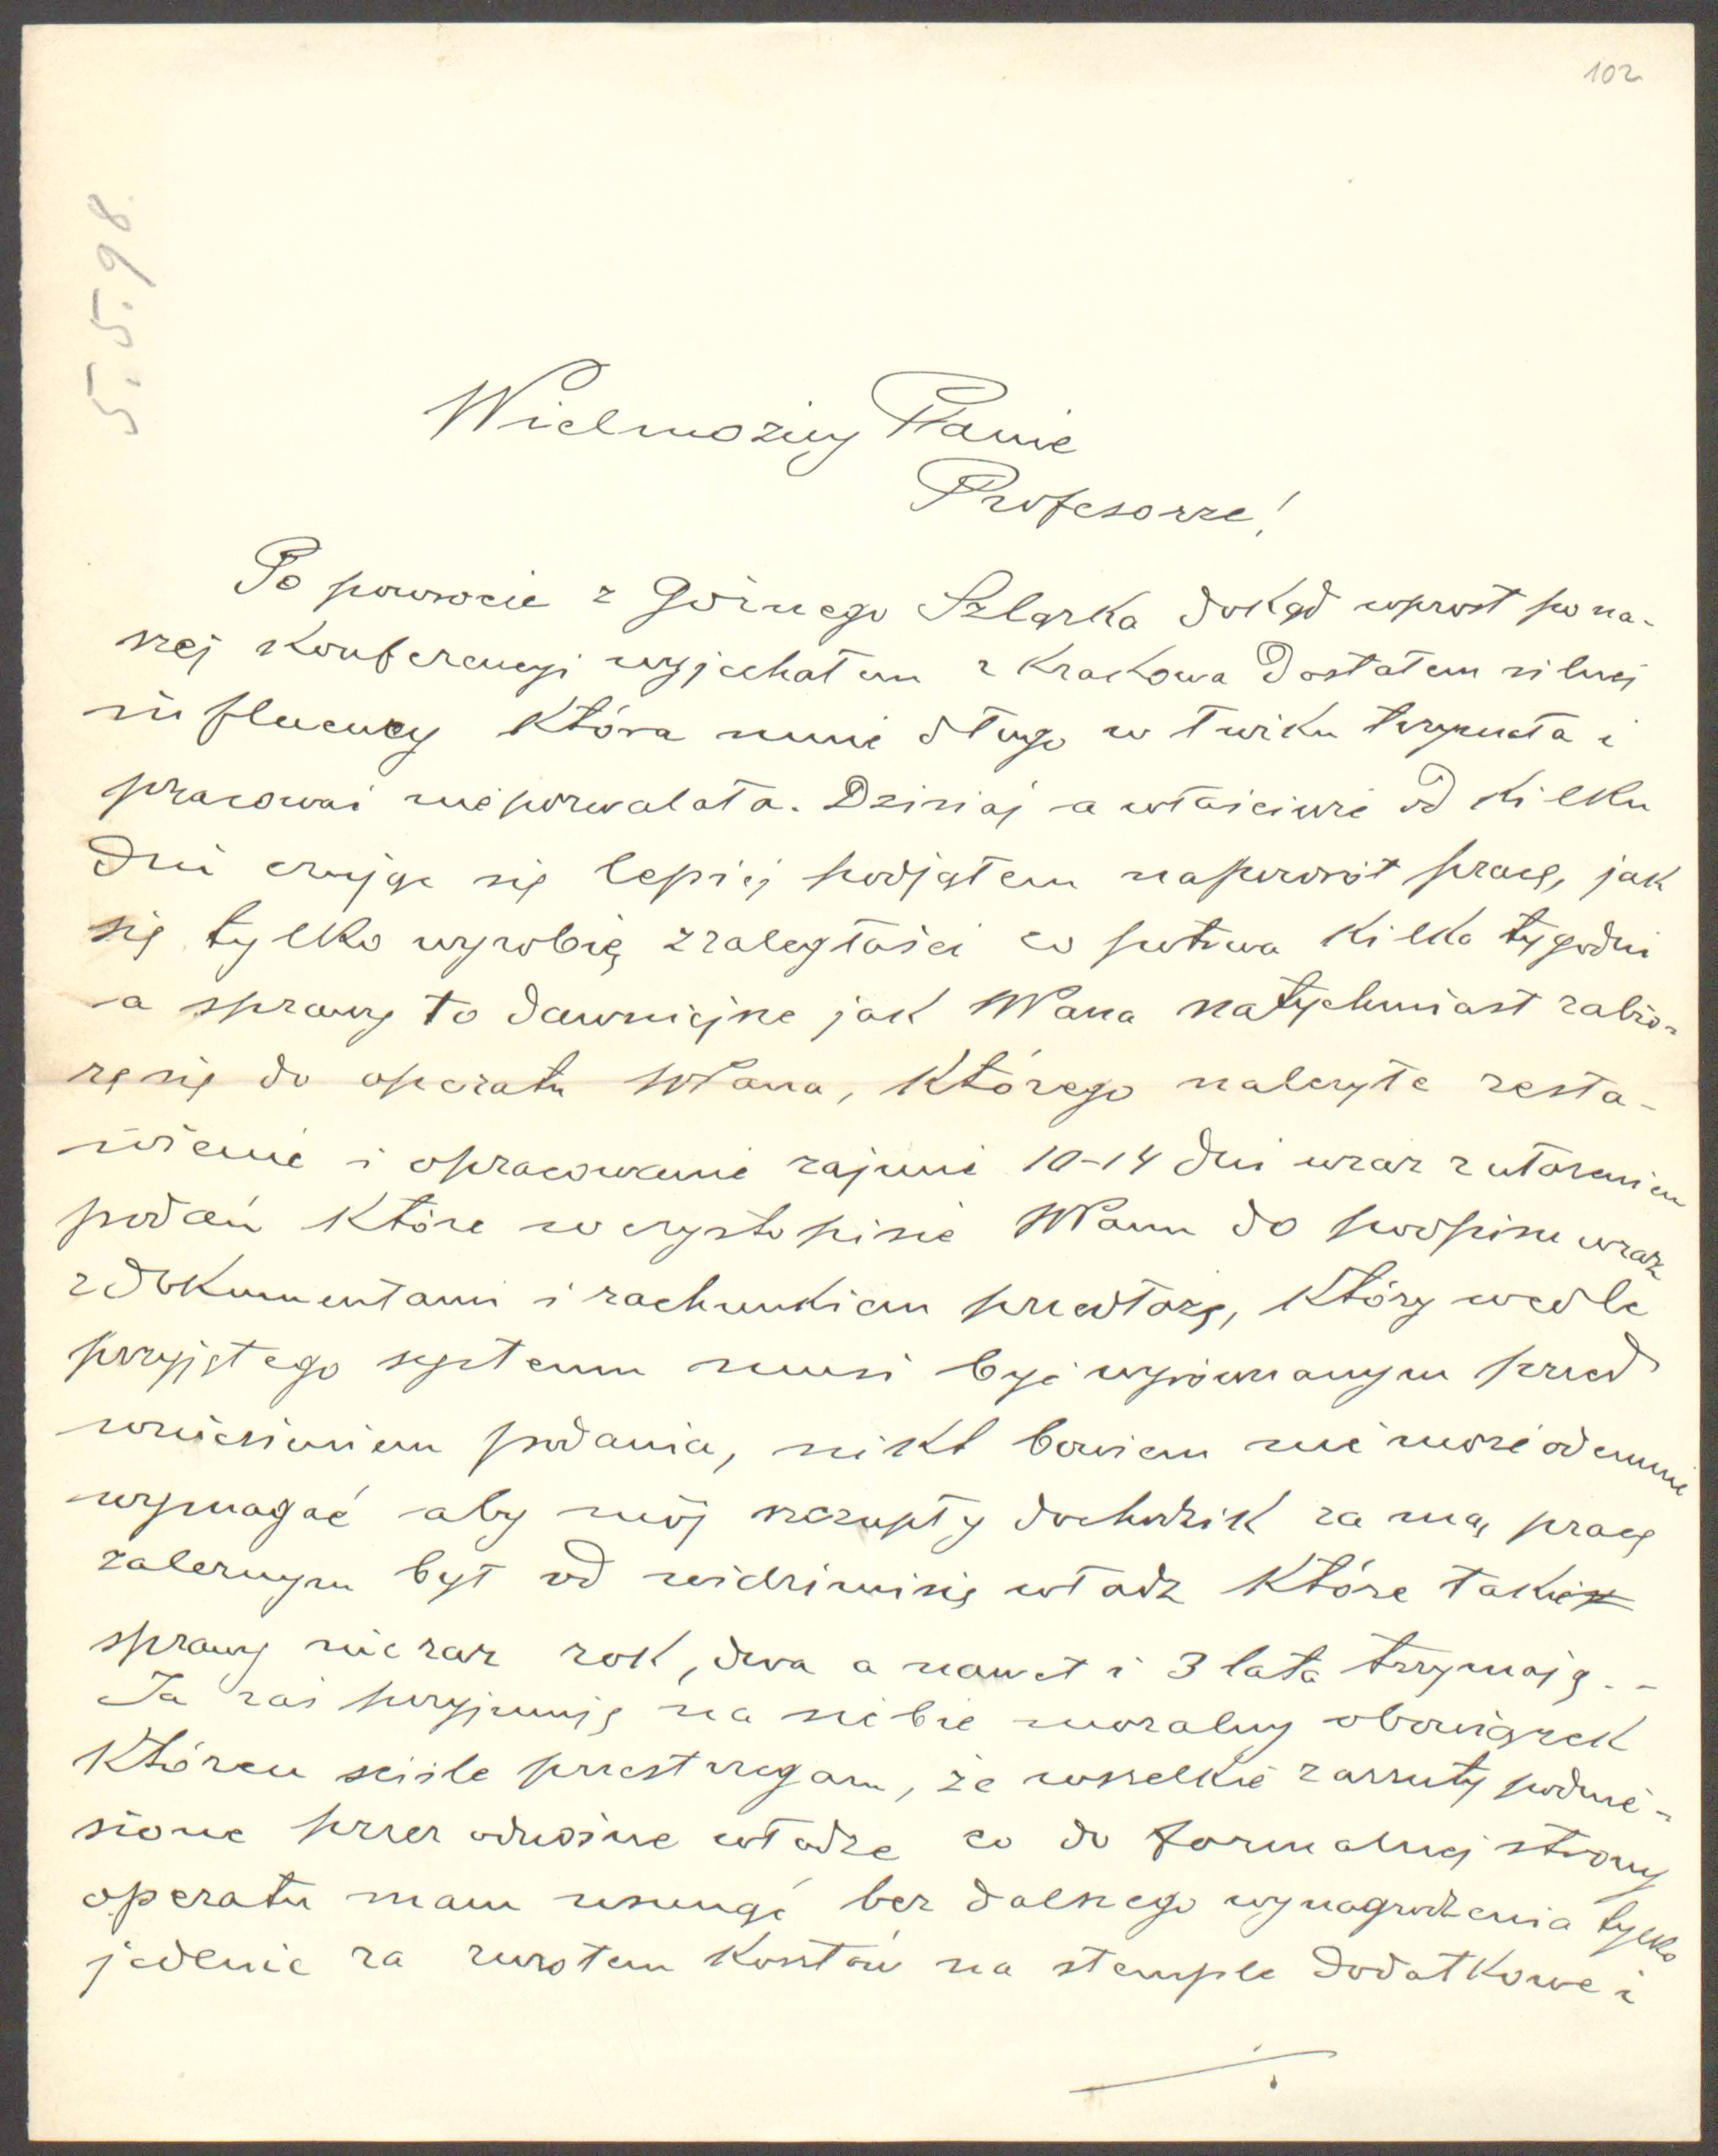 102
5.5.98.
Wielmożny Panie
Profesorze!
Po powrocie z Górnego Szląska dokąd wprost po na-
szej konferencyi wyjechałem z Krakowa dostałem silnej
influency która mnie długo w łóżku trzymała i
pracować nie pozwalała. Dzisiaj a właściwie od kilku
dni czując się lepiej podjąłem napowrót pracę, jak
się tylko wyrobię z zaległości co potrwa kilka tygodni
a sprawy to dawniejsze jak WPana natychmiast zabio-
rę się do operatu WPana, którego należyte zesta-
wienie i opracowanie zajmie 10-14 dni wraz z ułożeniem
podań które w czystopisie WPanu do podpisu wraz
z dokumentami i rachunkiem przedłożę, który wedle
przyjętego systemu musi być wyrównanym przed
wniesieniem podania, nikt bowiem nie może odemnie
wymagać aby mój szczupły dochodzik za mą pracę
zależnym był od widzimisię władz które takie
sprawy nieraz rok, dwa a nawet i 3 lata trzymają. -
Ja zaś przyjmuję na siebie moralny obowiązek
któren ściśle przestrzegam, że wszelkie zarzuty podnie-
sione przez odnośne władze co do formalnej strony
operatu mam usunąć bez dalszego wynagrodzenia tylko
jedynie za zwrotem kosztów na stemple dodatkowe i